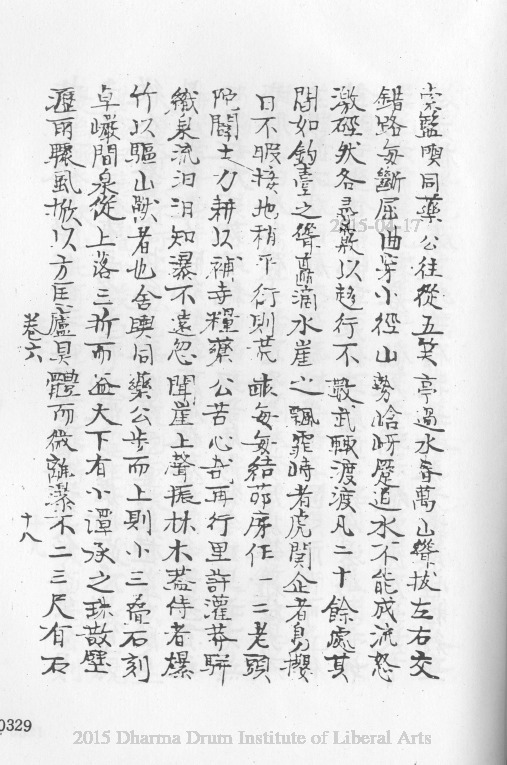 索籃輿同藥公往從五笑亭過水舂萬山聳拔左右交
錯路每斷屈曲穿小徑山勢唅岈蹙迫水不能成流怒
激硿然各尋竅以趍行不數武輒渡渡凡二十餘處其
間如釣臺之聳矗滴水崖之飄霏峙者虎関企者鳥攫
日不暇接地稍平衍則荒畦每每結茆序住一二老頭
陀闢土力耕以補寺糧藥公苦心哉再行里許灌莽駢
織泉流汨汨知瀑不遠忽聞崖上聲振林木蓋侍者摞
竹以驅山獸者也舍輿同藥公步而上則小三疊石刻
卓巗間泉從上落三折而益大下有小潭承之珠散壁
瀝雨驟風掀以方匡廬具體而微離瀑不二三尺有石
卷六
十八
0329
2015-04-17
2015 Dharma Drum Institute of Liberal Arts